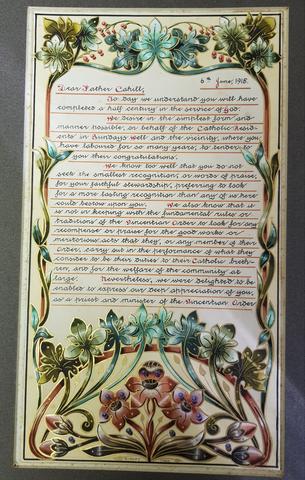 6th June, 1918.
Dear Father Cahill,
To day we understand you will have
completed a half century in the service of God.
We desire in the simplest form and
manner possible, on behalf of the Catholic Resid-
ents in Bundays Well and the vicinity, where you
have laboured for so many years, to tender to
you their congratulations.
We know too well that you do not
seek the smallest recognition, or words of praise
for your faithful stewardship, preferring to look
for a more lasting recognition than any of us here
could bestow upon you. We also know that it
is not in keeping with the fundamental rules or
traditions of the Vincentian Order to look for any
recompense or praise for the good works or
meritorious acts that they, or any member of their
Order, carry out in the performance of what they
consider to be their duties to their Catholic breth-
ren, and for the welfare of the community at
large. Nevertheless, we were delighted to be
enabled to express our deep appreciation of you,
as a priest and minister of the Vincentian Order